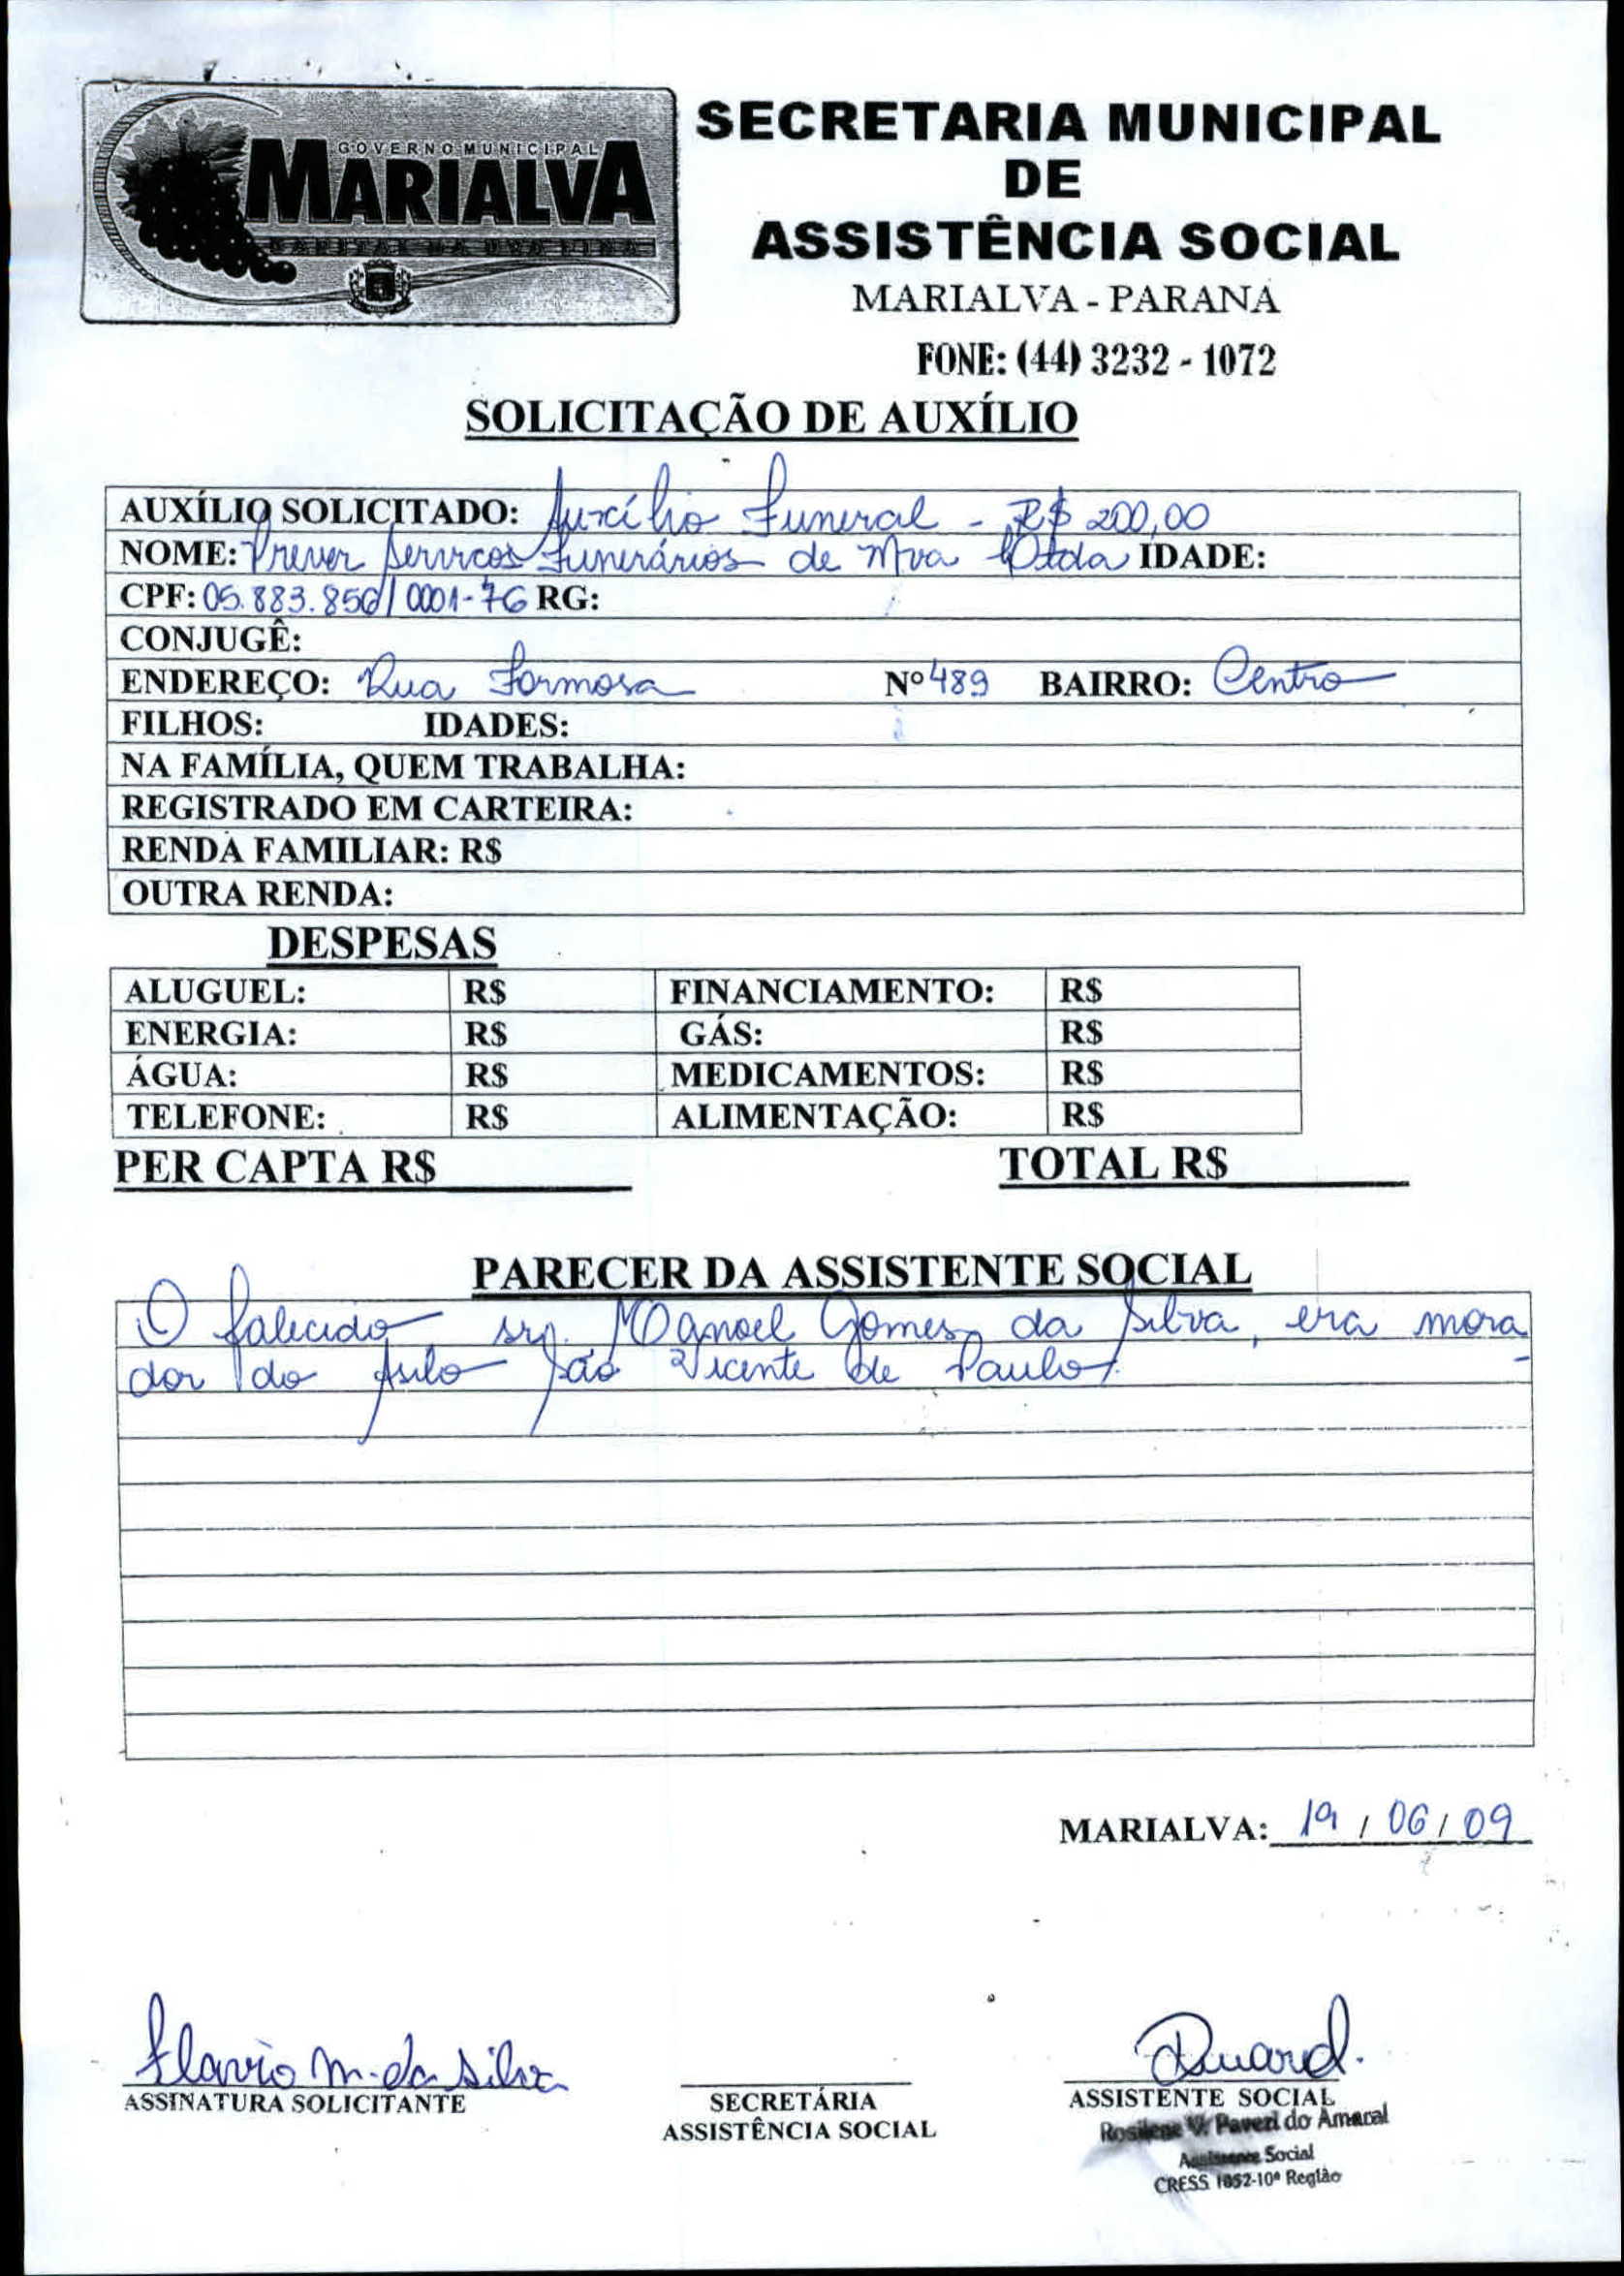 GOVERNO MUNICIPAL
MARIALVA
CAPITAL DA UVA FINA
SECRETARIA MUNICIPAL
DE
ASSISTÊNCIA SOCIAL
MARIALVA - PARANÁ
FONE: (44) 3232 - 1072
SOLICITAÇÃO DE AUXÍLIO
AUXÍLIO SOLICITADO: Auxílio Funeral - R$ 200,00
NOME: Prever Servicos Funerários de Mva Ltda IDADE:
CPF: 05.883.856/0001-76 RG:
CONJUGÊ:
ENDEREÇO: Rua Formosa Nº 489 BAIRRO: Centro
FILHOS: IDADES:
NA FAMÍLIA, QUEM TRABALHA:
REGISTRADO EM CARTEIRA:
RENDA FAMILIAR: R$
OUTRA RENDA:
DESPESAS
ALUGUEL: R$ FINANCIAMENTO: R$
ENERGIA: R$ GÁS: R$
ÁGUA: R$ MEDICAMENTOS: R$
TELEFONE: R$ ALIMENTAÇÃO: R$
PER CAPTA R$ TOTAL R$
PARECER DA ASSISTENTE SOCIAL
O falecido, sr. Manoel Gomes da Silva, era mora-
dor do Asilo São Vicente de Paulo.
MARIALVA: 19 / 06 / 09
Flavio M. da Silva
ASSINATURA SOLICITANTE
SECRETÁRIA
ASSISTÊNCIA SOCIAL
ASSISTENTE SOCIAL
Rosilene V. Pavezi do Amaral
Assistente Social
CRESS 1852-10ª Região